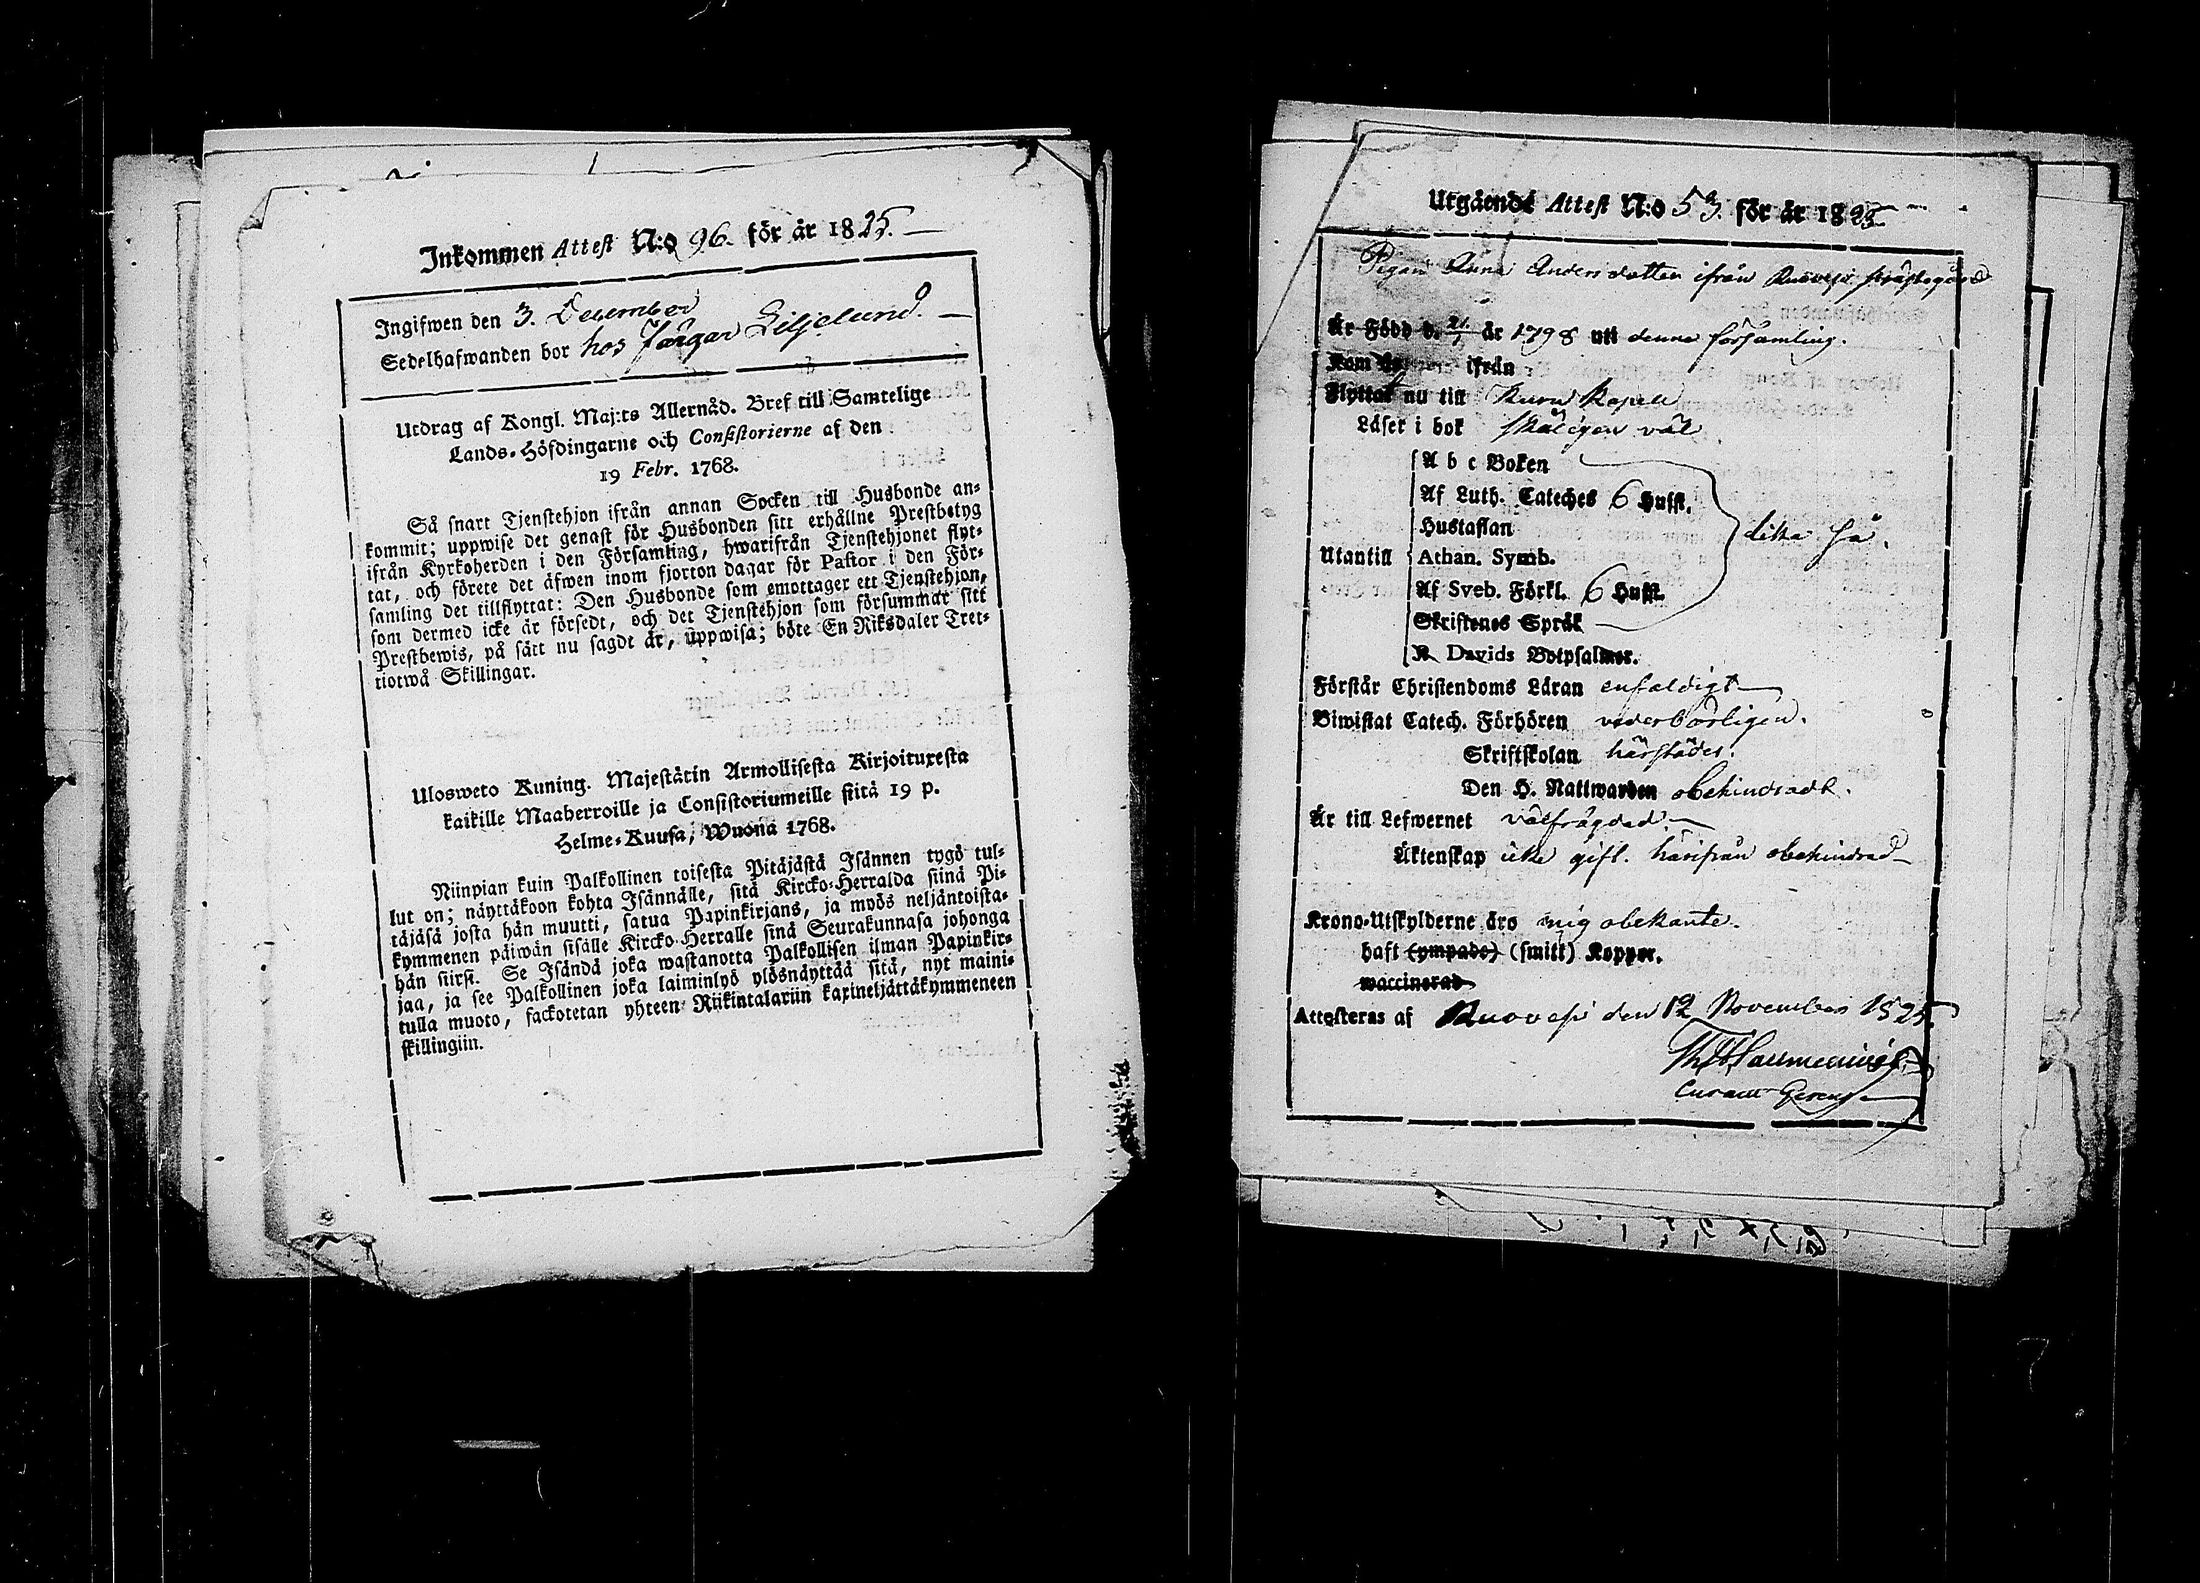 Inkommen Attest N:o 96. för år 1825.
Ingifwen den 3. December
Sedelhafwanden bor hos Färgar Liljelund.
Utdrag af Kongl. Maj:ts Allernåd. Bref till Samtelige
Lands-Höfdingarne och Consistorierne af den
19 Febr. 1768.
Så snart Tjenstehjon ifrån annan Socken till Husbonde an-
kommit; uppwise det genast för Husbonden sitt erhållne Prestbetyg
ifrån Kyrkoherden i den Församling, hwarifrån Tjenstehjonet flyt-
tat, och förete det äfwen inom fjorton dagar för Pastor i den För-
samling det tillflyttat: Den Husbonde som emottager ett Tjenstehjon,
som dermed icke är försedt, och det Tjenstehjon som försummar sitt
Prestbewis, på sätt nu sagdt är, uppwisa; böte En Riksdaler Tret-
tiotwå Skillingar.
Ulosweto Kuning. Majestätin Armollisesta Kirjoituxesta
kaikille Maaherroille ja Consistoriumeille siitä 19 p.
Helme-Kuusa, Wuona 1768.
Niinpian kuin Palkollinen toisesta Pitäjästä Isännen tygö tul-
lut on; näyttäkoon kohta Isännälle, sitä Kircko-Herralda siinä Pi-
täjäsä josta hän muutti, satua Papinkirjans, ja myös neljäntoista-
kymmenen päiwän sisälle Kircko-Herralle sinä Seurakunnasa johonga
hän siirsi. Se Isändä joka wastanotta Palkollisen ilman Papinkir-
jaa, ja see Palkollinen joka laiminlyö ylösnäyttää sitä, nyt maini-
tulla muoto, sackotetan yhteen Riikintalariin kaxineljättäkymmeneen
skillingiin.
Utgående Attest N:o 53. för år 1825
Pigan Anna Andersdotter ifrån Ruovesi prästegård
Är Född d. 21/1 år 1798 uti denna församling.
Kom ifrån
Flyttat nu till Kuru Kapell
Läser i bok skäligen väl
A b c Boken
Af Luth. Cateches 6 Hufst.
Hustaflan
lika så.
Utantill Athan. Symb.
Af Sveb. Förkl. 6 Hufst.
Skriftenes Språk
K. Davids Botpsalmer.
Förstår Christendoms Läran enfaldigt
Biwistat Catech. Förhören vederbörligen.
Skriftskolan härstädes.
Den H. Nattwarden obehindradt.
Är till Lefwernet välfrägdad.
Äktenskap icke gift. härifrån obehindrad
Krono-Utskylderne äro mig obekante.
haft (ympade) (smitt) Koppor.
waccinerad
Attesteras af Ruovesi den 12 November 1825.